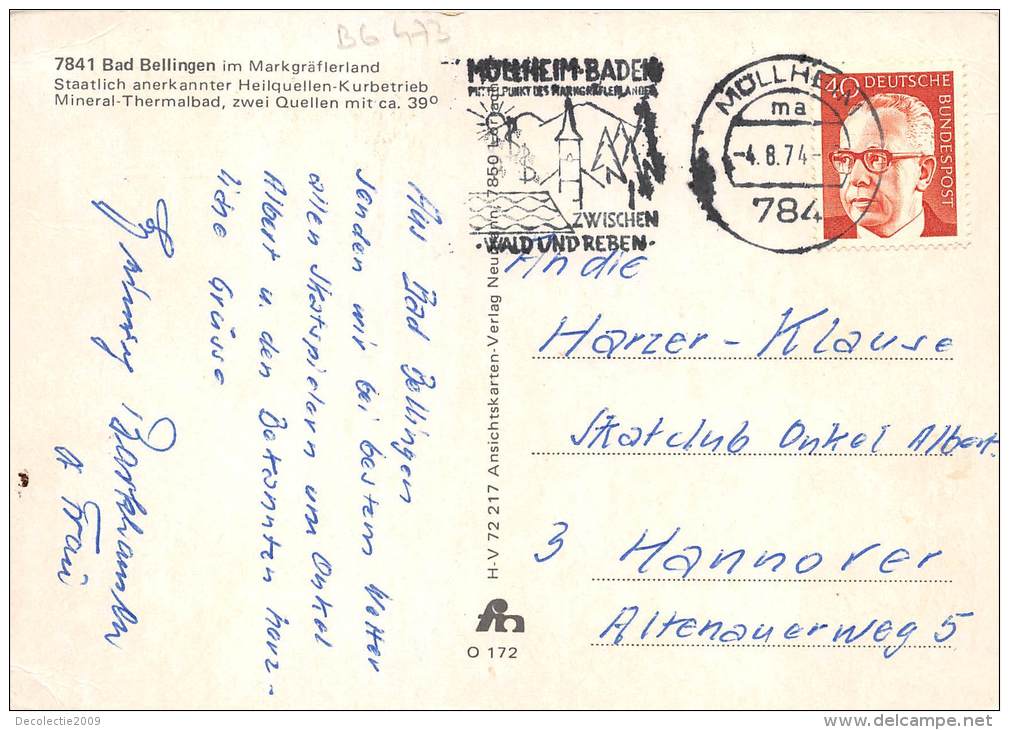 BG 473
7841 Bad Bellingen im Markgräflerland
Staatlich anerkannter Heilquellen-Kurbetrieb
Mineral-Thermalbad, zwei Quellen mit ca. 39°
MÜLLHEIM-BADEN
MITTELPUNKT DES MARKGRÄFLERLANDES
ZWISCHEN
·WALD UND REBEN·
MÜLLHEIM
ma
-4.8.74-
784
40 DEUTSCHE
BUNDESPOST
Aus Bad Bellingen
senden wir bei bestem Wetter
allen Skatspielern um Onkel
Albert u. den Bekannten herz-
liche Grüsse
u. Frau
H-V 72 217 Ansichtskarten-Verlag Neumann, 7850 Lörrach
fm
O 172
An die
Harzer-Klause
Skatclub Onkel Albert
3 Hannover
Altenauerweg 5
Decolectie2009
www.delcampe.net